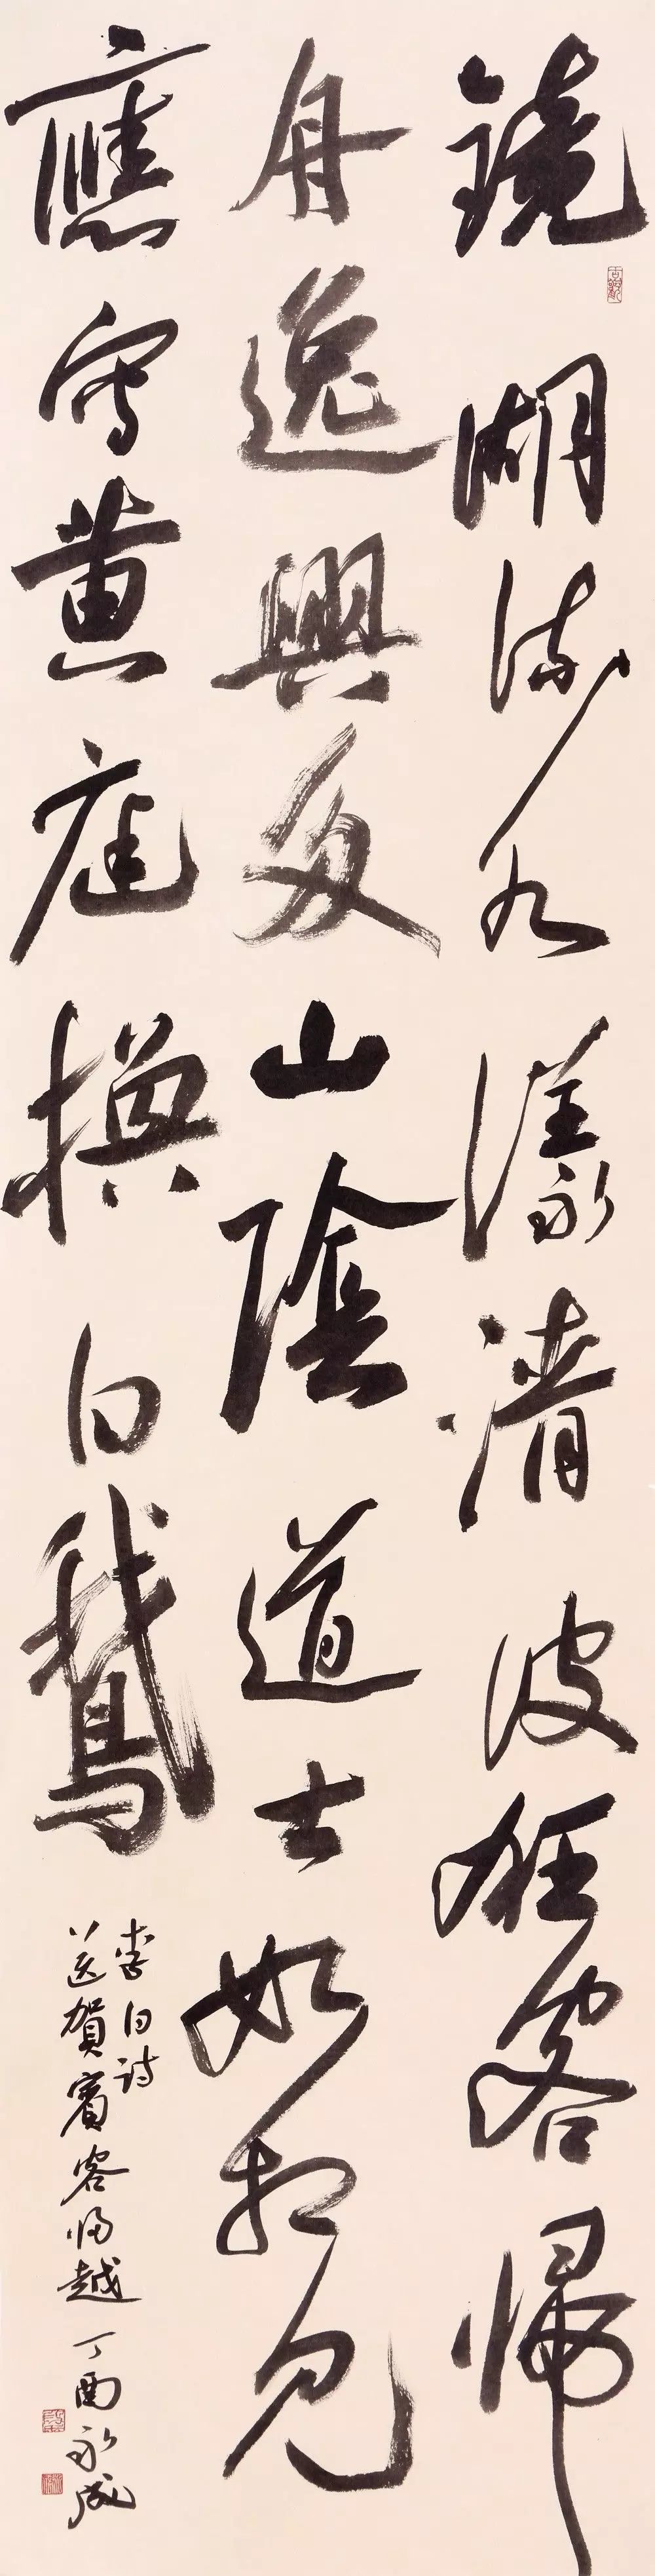 鏡湖流水漾清波狂客歸
舟逸興多山陰道士如相見
應寫黃庭換白鵝
李白詩
送賀賓客歸越 丁酉 永成